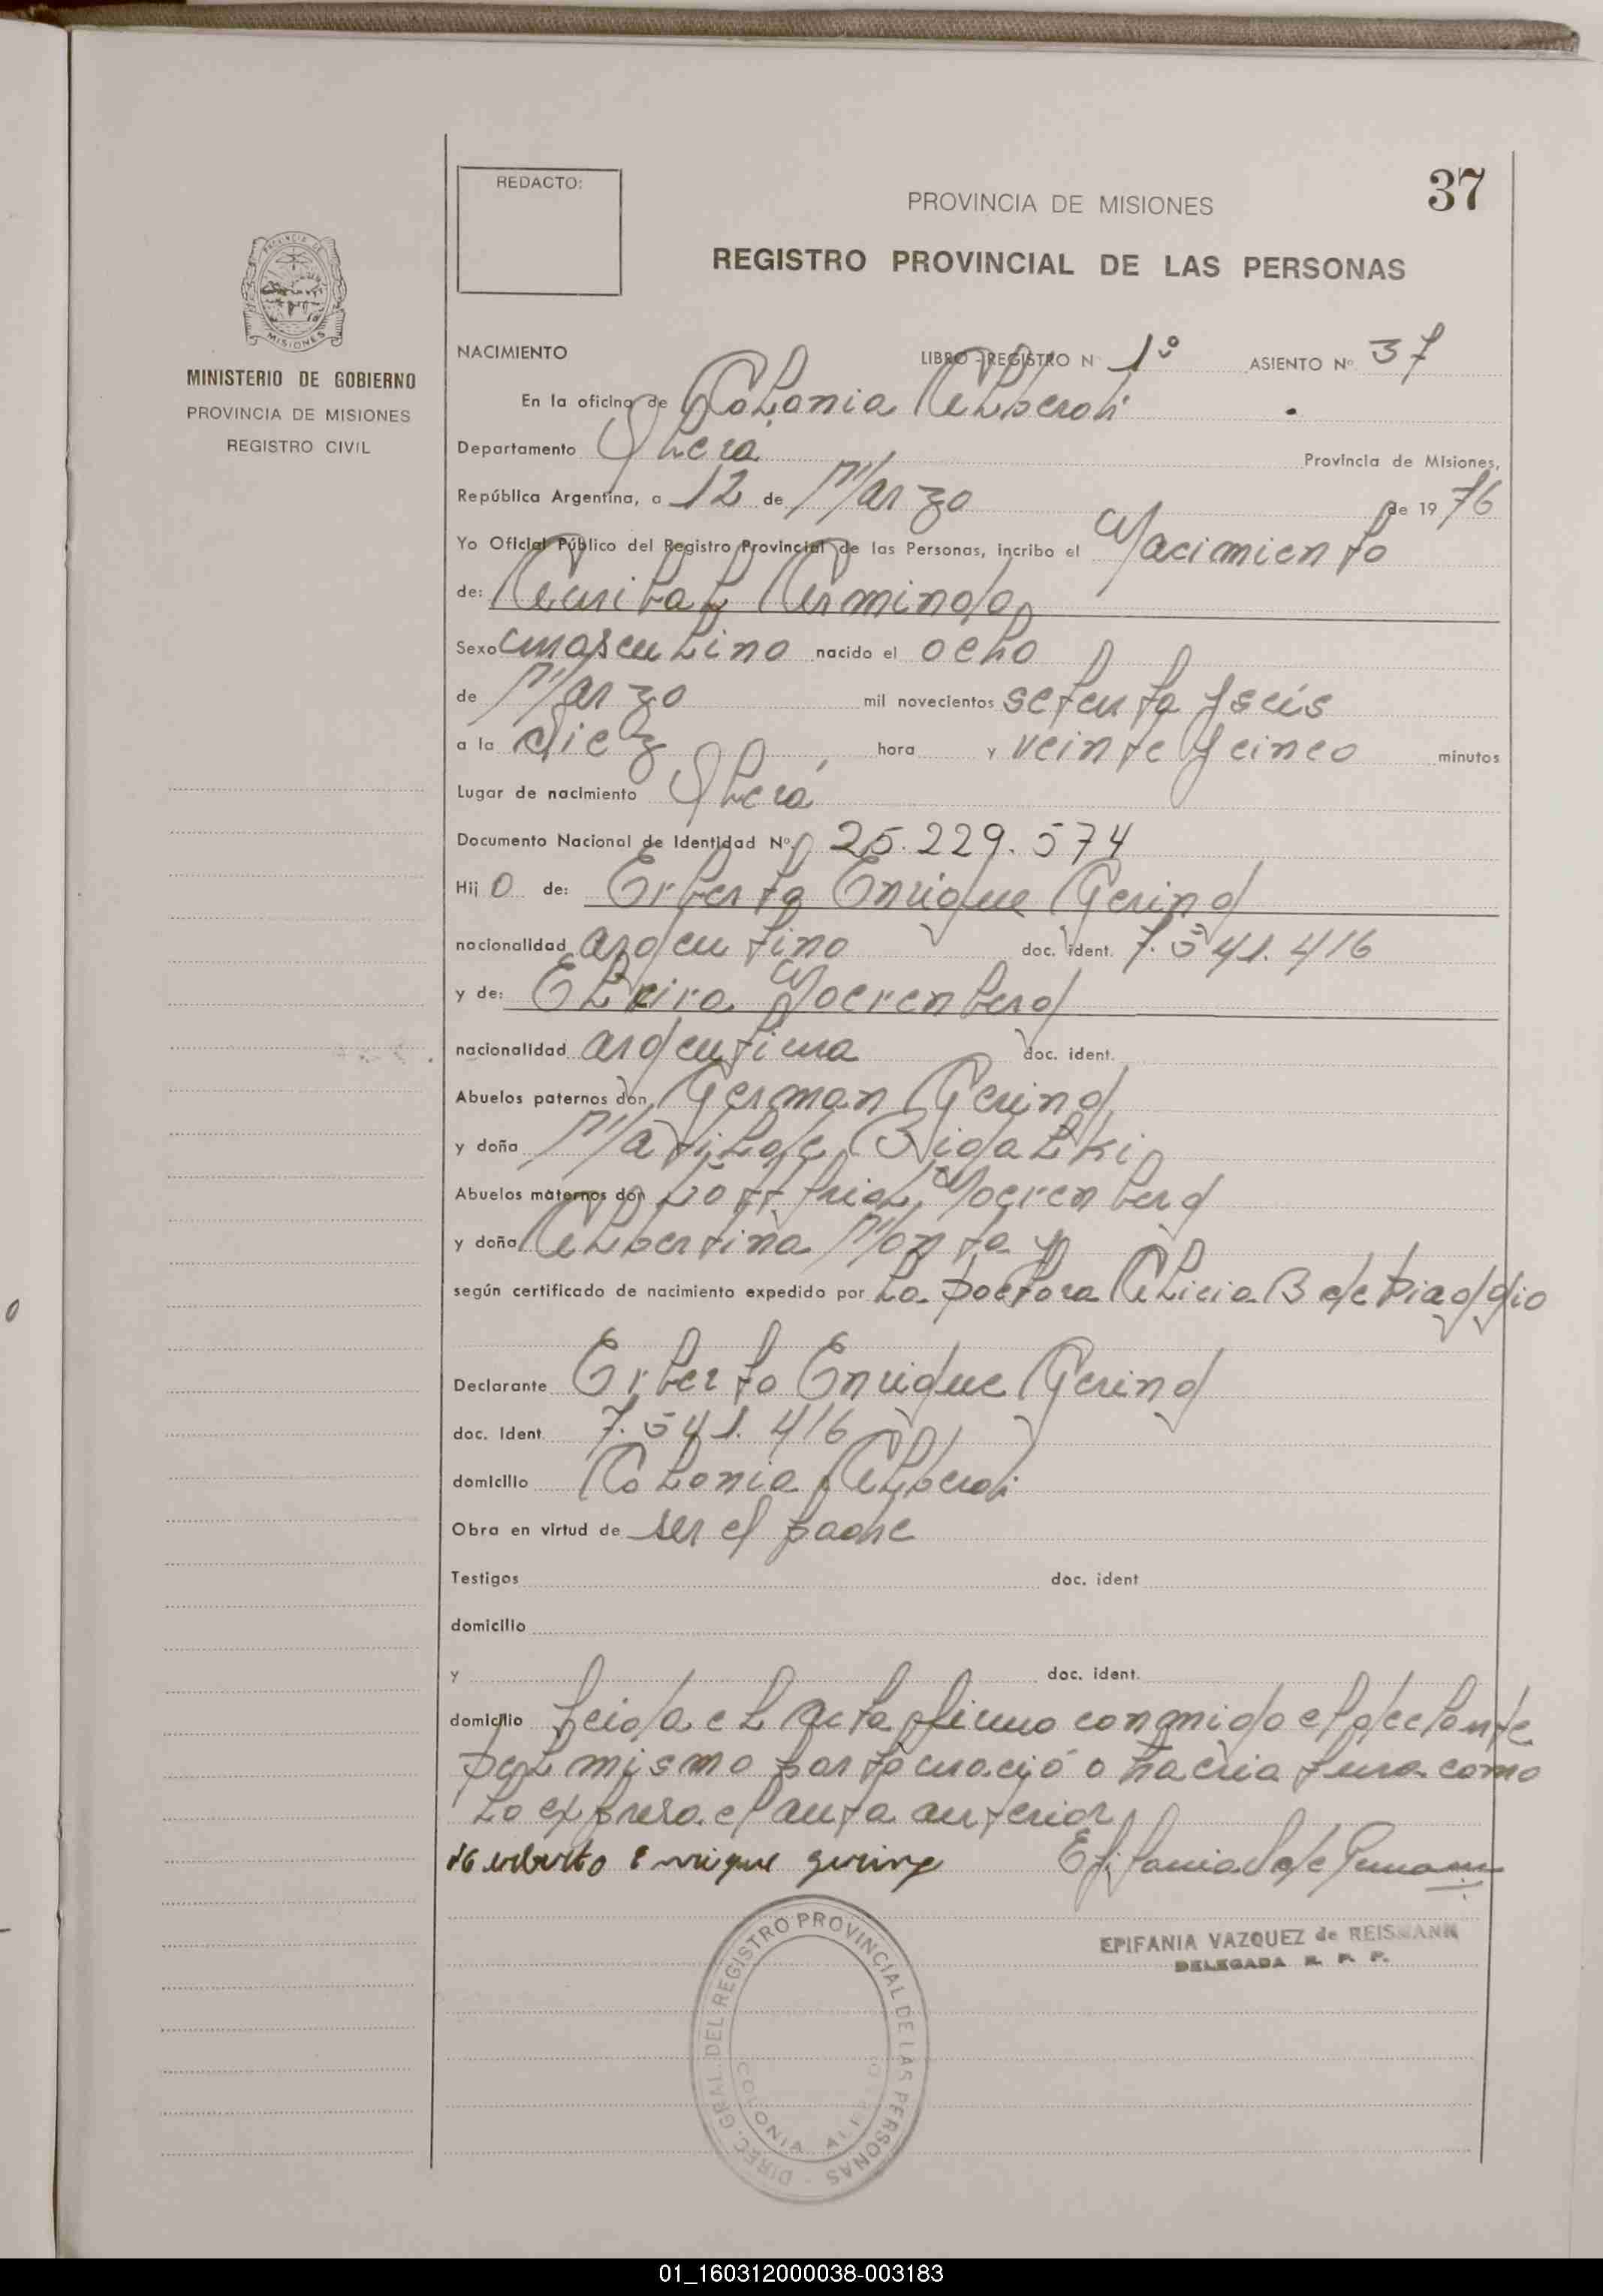 REDACTO:
PROVINCIA DE MISIONES
37
REGISTRO PROVINCIAL DE LAS PERSONAS
PROVINCIA DE
MISIONES
MINISTERIO DE GOBIERNO
PROVINCIA DE MISIONES
REGISTRO CIVIL
NACIMIENTO LIBRO - REGISTRO N 1º ASIENTO Nº 37
En la oficina de Colonia Alberdi
Departamento Oberá Provincia de Misiones,
República Argentina, a 12 de Marzo de 19 76
Yo Oficial Público del Registro Provincial de las Personas, incribo el Nacimiento
de: Armindo
Sexo masculino nacido el ocho
de Marzo mil novecientos setenta y seis
a la diez hora y veinte y cinco minutos
Lugar de nacimiento Oberá
Documento Nacional de Identidad Nº 25.229.574
Hij o de: Erberto Enrique Gering
nacionalidad argentino doc. ident. 7.541.416
y de: Elvira Noerenberg
nacionalidad argentina doc. ident.
Abuelos paternos don German Gering
y doña Matilde Bigalki
Abuelos maternos don Noerenberg
y doña Albertina
según certificado de nacimiento expedido por La Doctora Alicia B de Biaggio
Declarante Erberto Enrique Gering
doc. Ident. 7.541.416
domicilio Colonia Alberdi
Obra en virtud de ser el padre
Testigos doc. ident
domicilio
y doc. ident.
domicilio Leida el acta firmo conmigo el
Del mismo como
Lo expresa el anterior
Enrique Gering
EPIFANIA VAZQUEZ de REISMANN
DELEGADA R. P. P.
DIREC. GRAL. DEL REGISTRO PROVINCIAL DE LAS PERSONAS
COLONIA
01_160312000038-003183